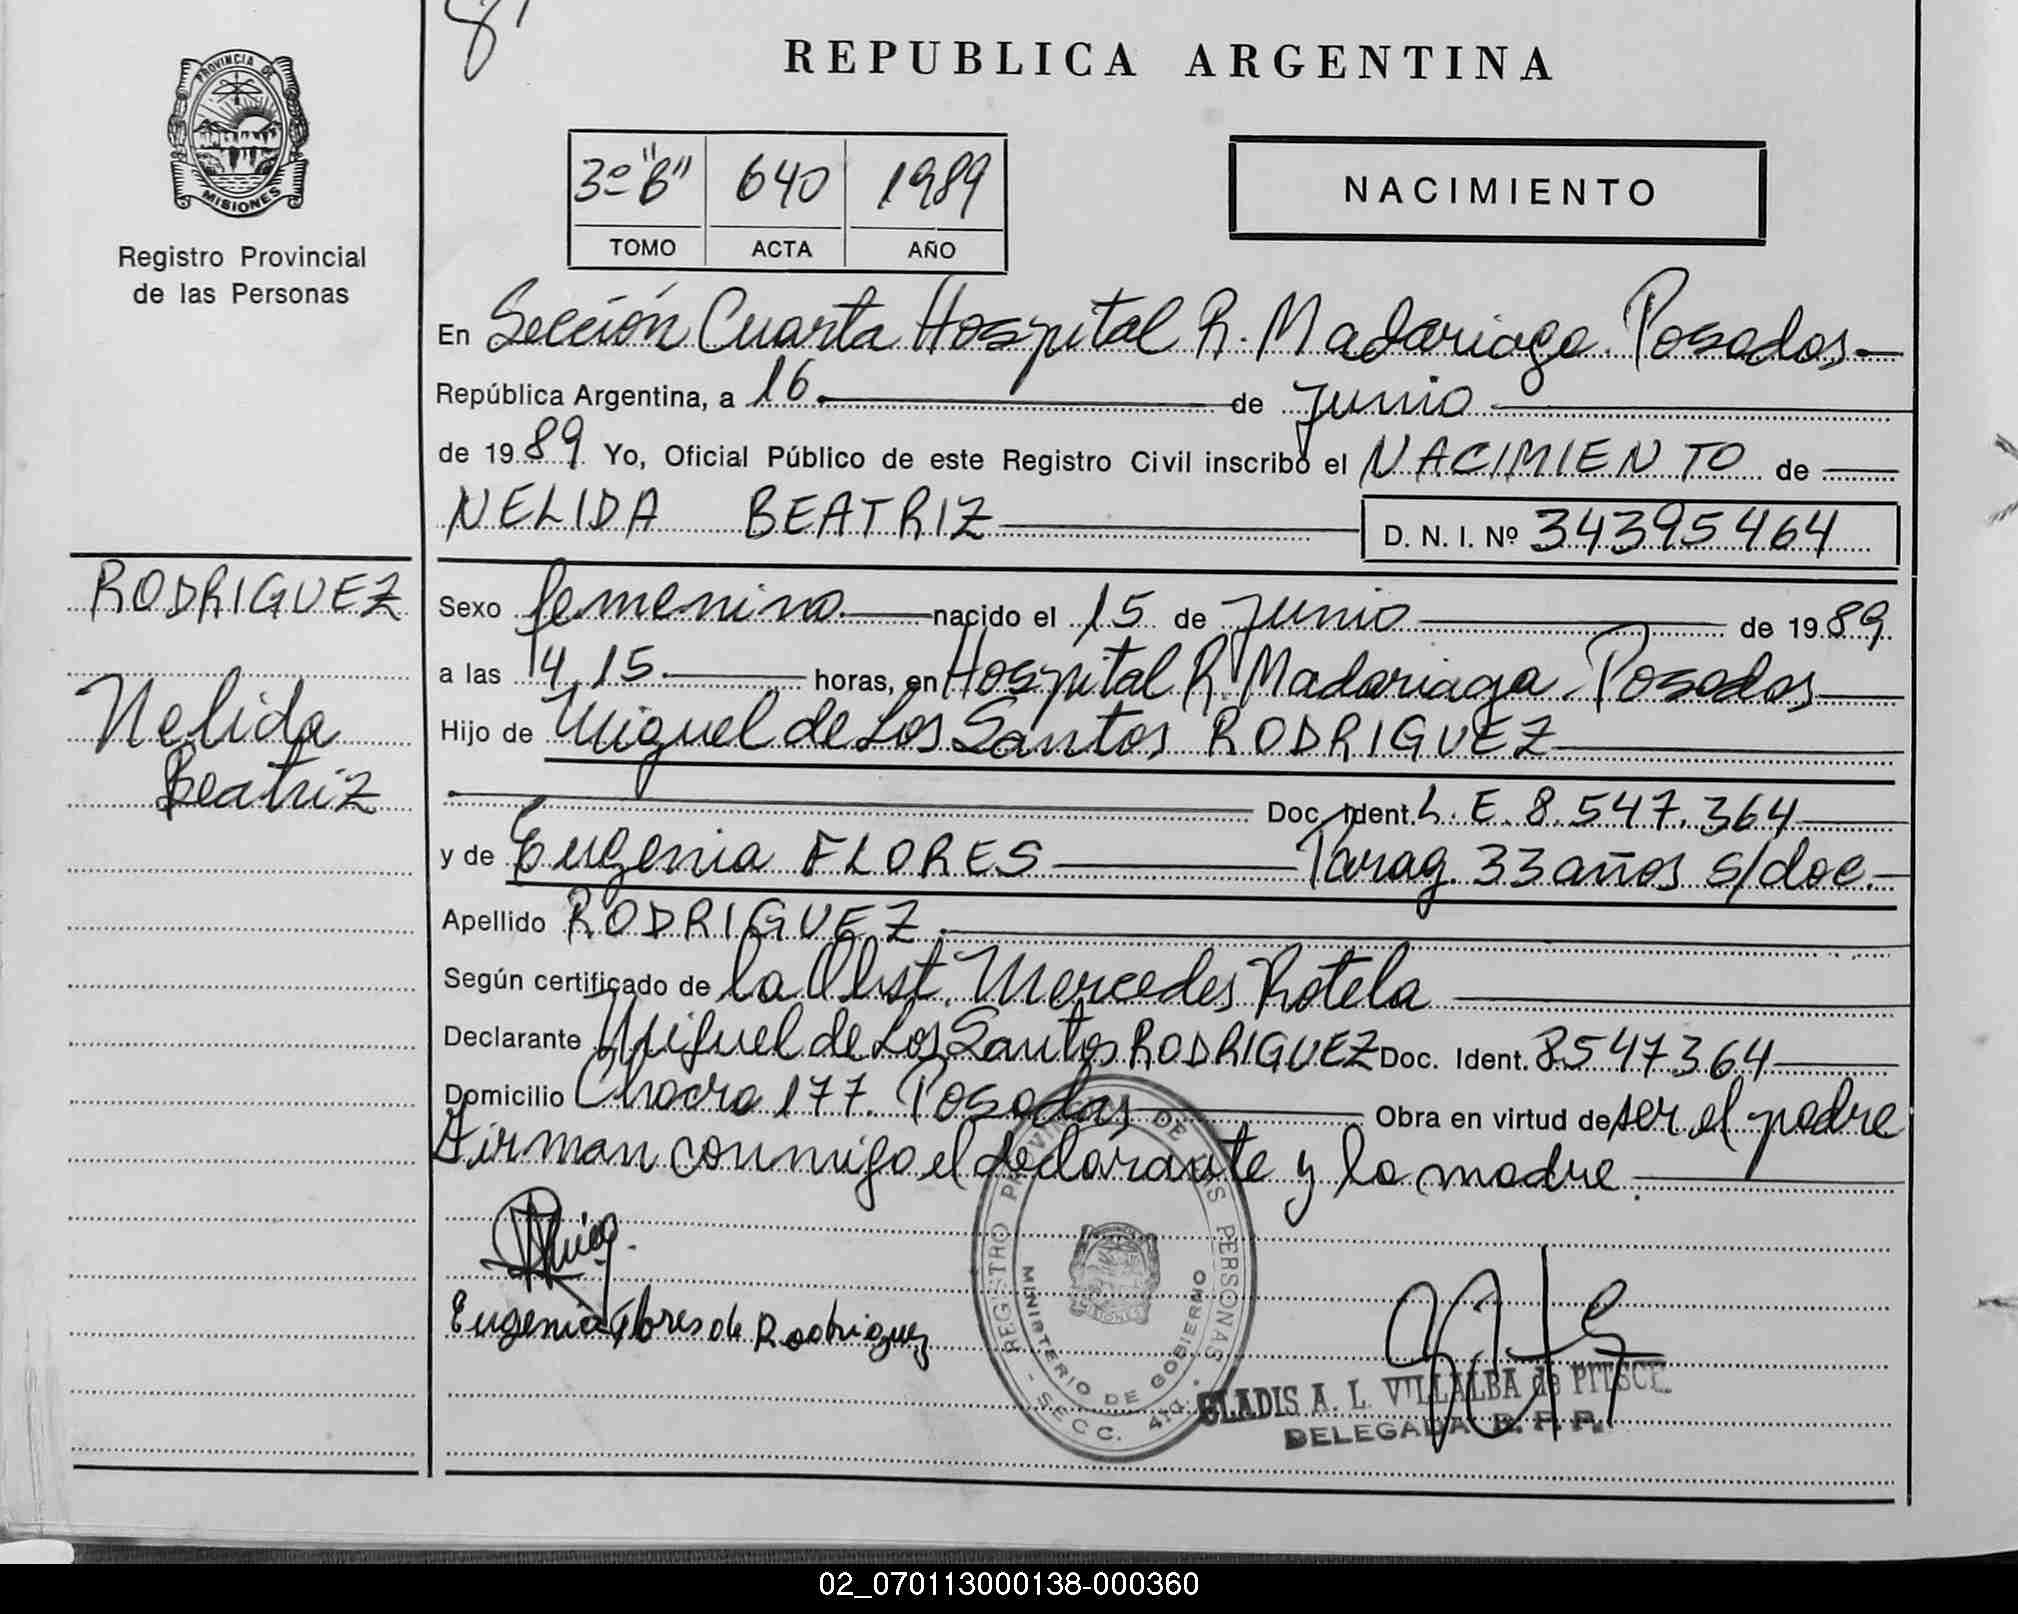 8
REPUBLICA ARGENTINA
PROVINCIA DE
MISIONES
Registro Provincial
de las Personas
3º "B" 640 1989
TOMO ACTA AÑO
NACIMIENTO
En Sección Cuarta Hospital R. Madariaga. Posadas
República Argentina, a 16 de Junio
de 1989 Yo, Oficial Público de este Registro Civil inscribo el NACIMIENTO de
NELIDA BEATRIZ D. N. I. Nº 34395464
RODRIGUEZ
Nelida
Beatriz
Sexo femenino nacido el 15 de Junio de 1989
a las 14,15 horas, en Hospital R. Madariaga. Posadas
Hijo de Miguel de Los Santos RODRIGUEZ
Doc. Ident. L. E. 8.547.364
y de Eugenia FLORES Parag. 33 años s/doc.
Apellido RODRIGUEZ
Según certificado de la Obst. Mercedes Rotela
Declarante Miguel de Los Santos RODRIGUEZ Doc. Ident. 8547364
Domicilio Chacra 177. Posadas Obra en virtud de ser el padre
Firman conmigo el declarante y la madre.
Eugenia Flores de Rodriguez
REGISTRO PROVINCIAL DE LAS PERSONAS
MINISTERIO DE GOBIERNO
- SECC. 4ta. -
GLADIS A. L. VILLALBA de PITSCH
DELEGADA R. P. P.
02_070113000138-000360